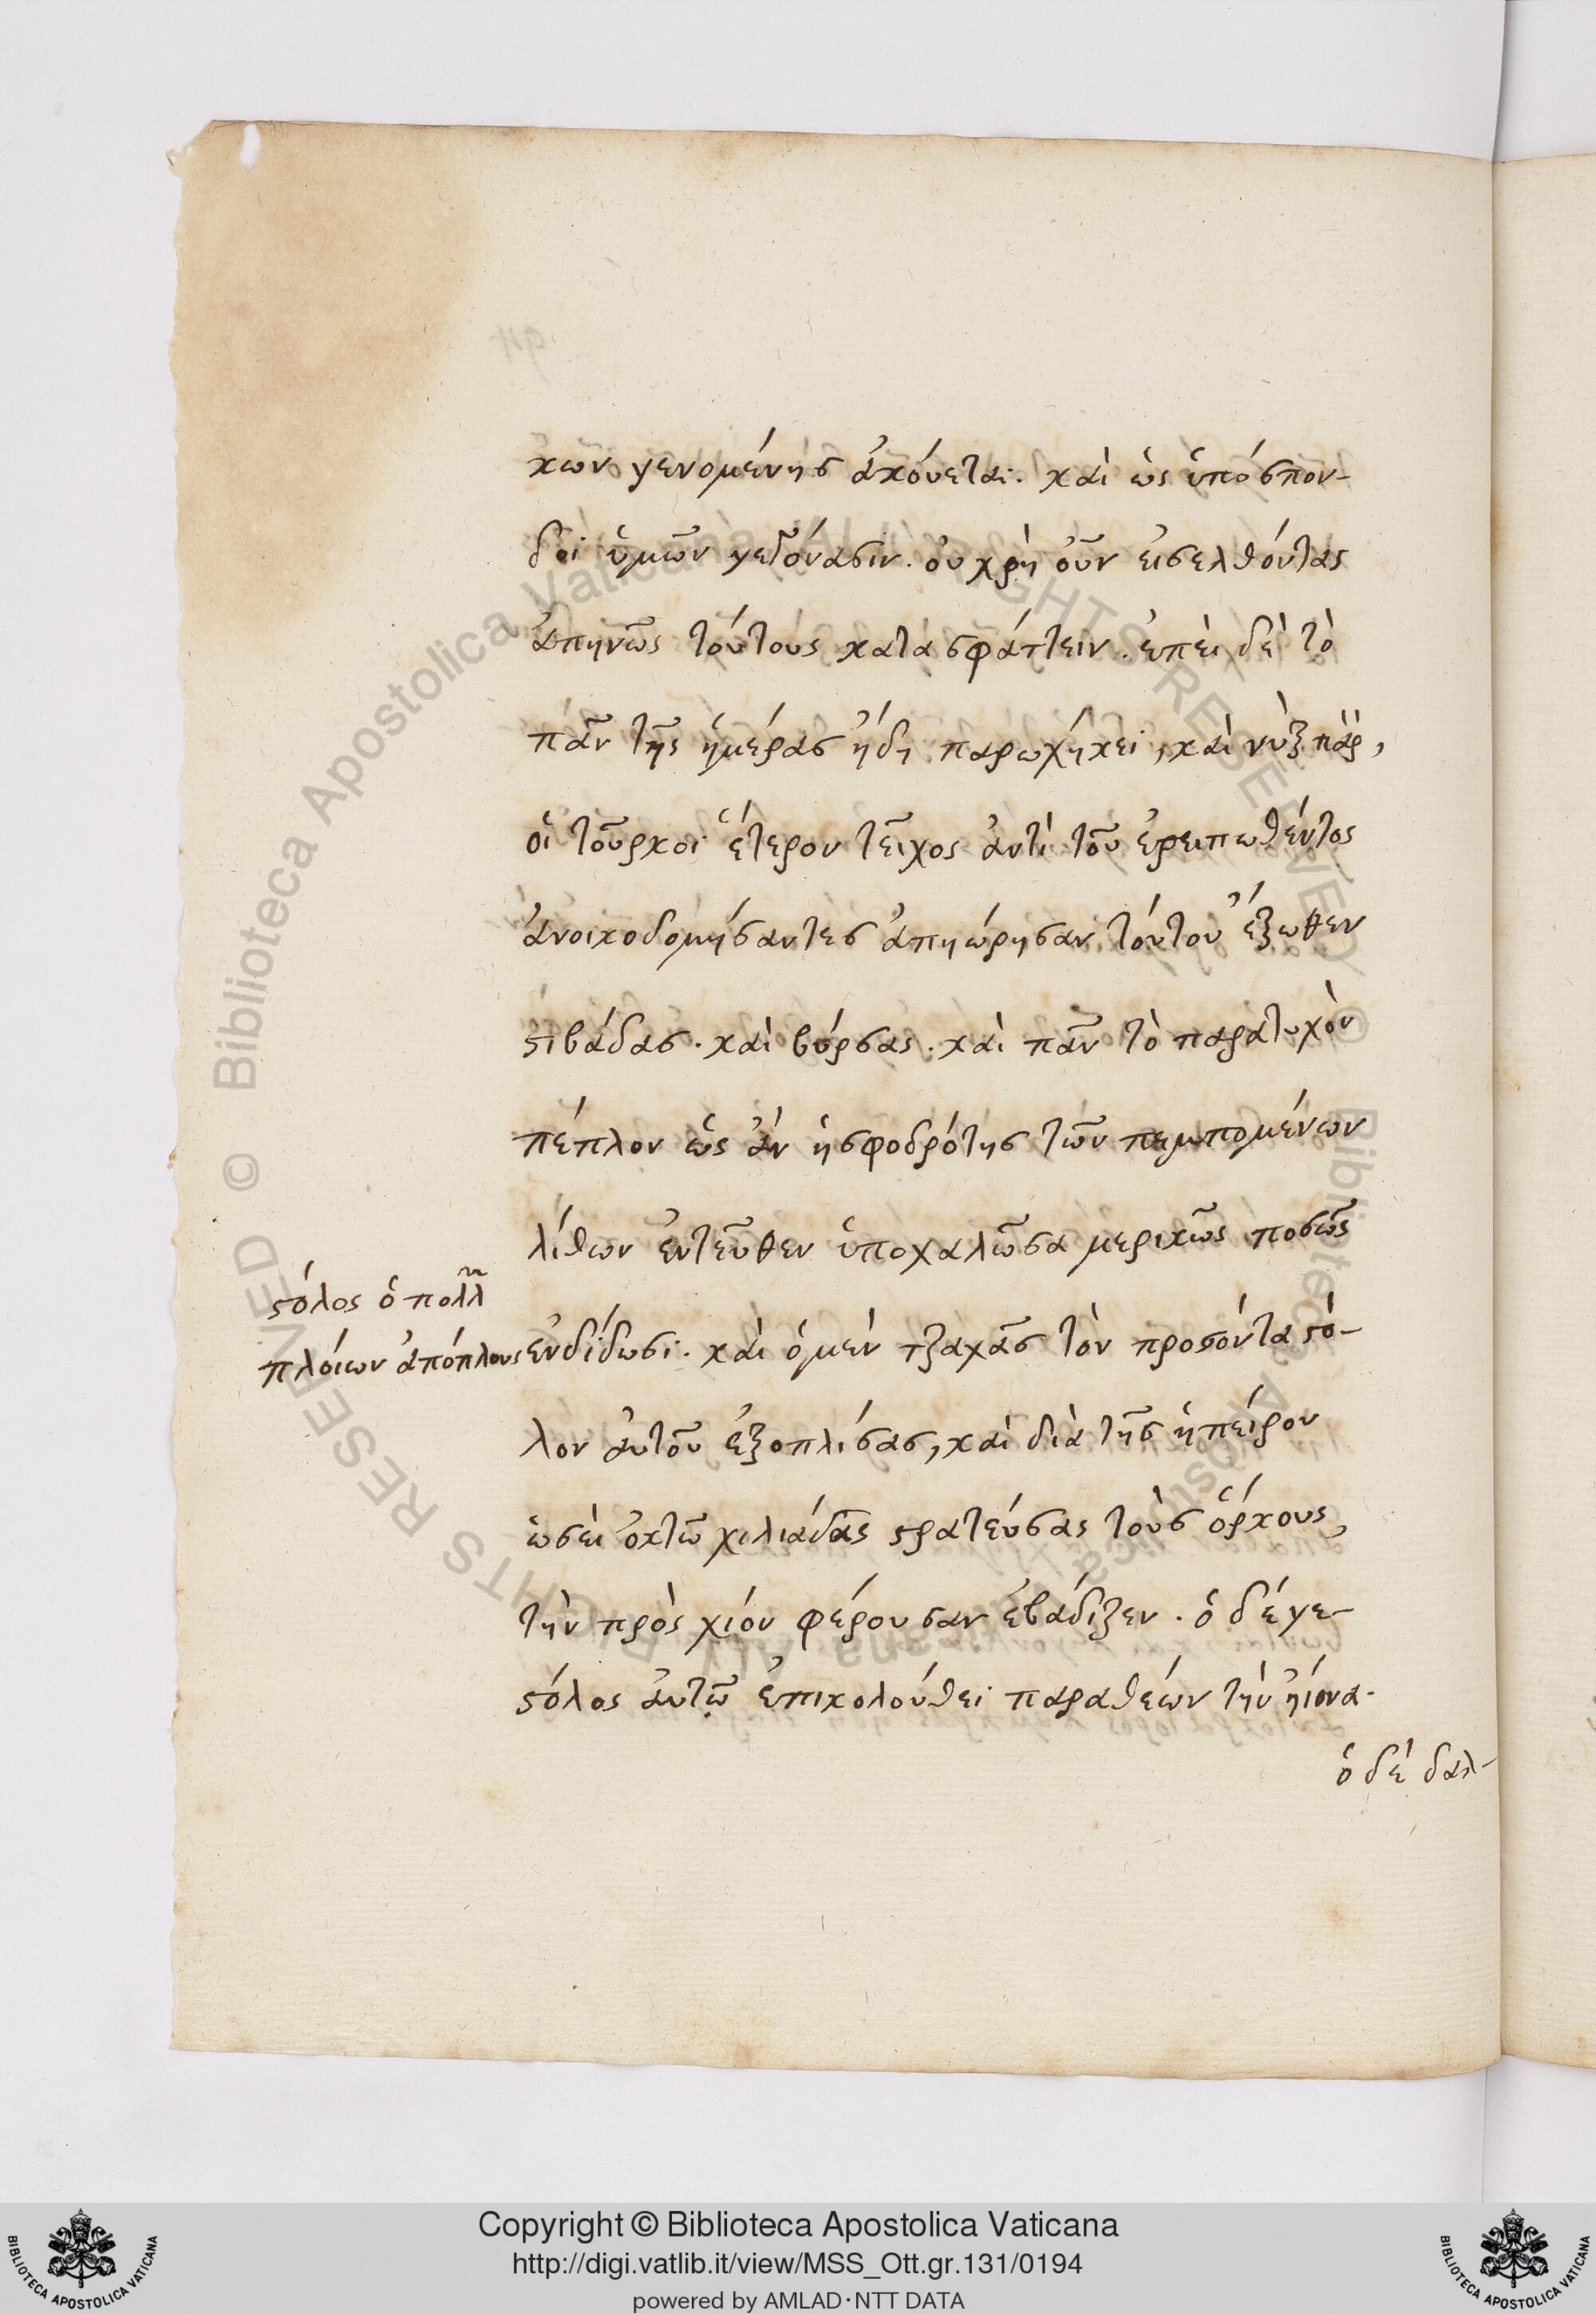 κων γενομένης ἀκούεται. καὶ ὡς ὑπόσπον-
δοι ὑμῶν γεγόνασιν. οὐ χρὴ οὖν εἰσελθόντας
ἀπηνῶς τούτους κατασφάττειν. ἐπεὶ δὲ τὸ
πᾶν τῆς ἡμέρας ἤδη παρωχήκει, καὶ νὺξ πὰρ,
οἱ τοῦρκοι ἕτερον τεῖχος ἀντὶ τοῦ ἐρειπωθέντος
ἀνοικοδομήσαντες ἀπηώρησαν τούτου ἔξωθεν
στιβάδας. καὶ βύρσας. καὶ πᾶν τὸ παρατυχὸν
πέπλον ὡς ἂν ἡ σφοδρότης τῶν πεμπομένων
λίθων ἐντεῦθεν ὑποχαλῶσα μερικῶς ποσῶς
στόλος ὁ πολλ
πλοίων ἀπόπλους
ἐνδίδωσι. καὶ ὁ μὲν τζαχᾶς τὸν προσόντα στό-
λον αὐτοῦ ἐξοπλίσας, καὶ διὰ τῆς ἠπείρου
ὡσεὶ ὀκτῶ χιλιάδας στρατεύσας τοὺς ὅρκους,
τὴν πρὸς χίον φέρουσαν ἐβάδιζεν. ὁ δέ γε
στόλος αὐτῶ ἐπικολούθει παραθέων τὴν ἠϊόνα.
ὁ δὲ δαλ-
Copyright © Biblioteca Apostolica Vaticana
http://digi.vatlib.it/view/MSS_Ott.gr.131/0194
powered by AMLAD·NTT DATA